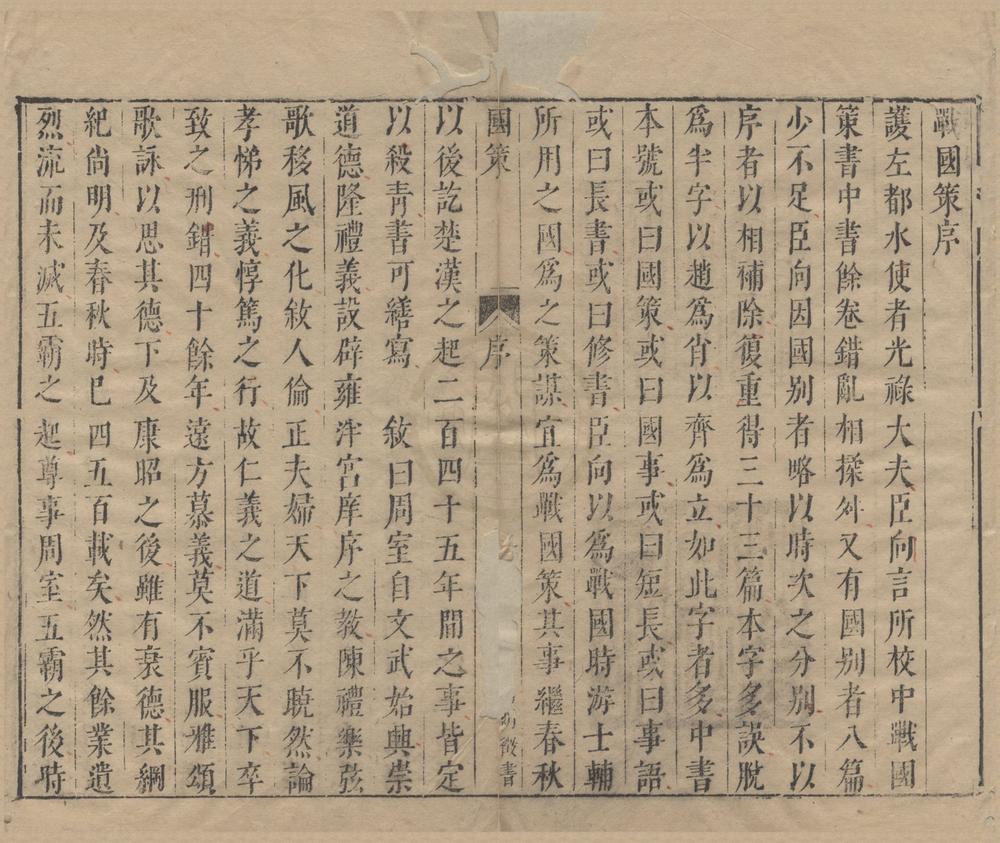 戰國策序
護左都水使者光祿大夫臣向言所校中戰國
策書中書餘卷錯亂相揉舛又有國別者八篇
少不足臣向因國別者略以時次之分別不以
序者以相補除復重得三十三篇本字多誤脫
爲半字以趙爲肖以齊爲立如此字者多中書
本號或曰國策或曰國事或曰短長或曰事語
或曰長書或曰修書臣向以爲戰國時游士輔
所用之國爲之策謀宜爲戰國策其事繼春秋
國策 序
徵書
以後訖楚漢之起二百四十五年間之事皆定
以殺靑書可繕寫 敘曰周室自文武始興崇
道德隆禮義設辟雍泮宮庠序之敎陳禮樂弦
歌移風之化敘人倫正夫婦天下莫不曉然論
孝悌之義惇篤之行故仁義之道滿乎天下卒
致之刑錯四十餘年遠方慕義莫不賓服雅頌
歌詠以思其德下及康昭之後雖有衰德其綱
紀尙明及春秋時已四五百載矣然其餘業遺
烈流而未滅五霸之起尊事周室五霸之後時